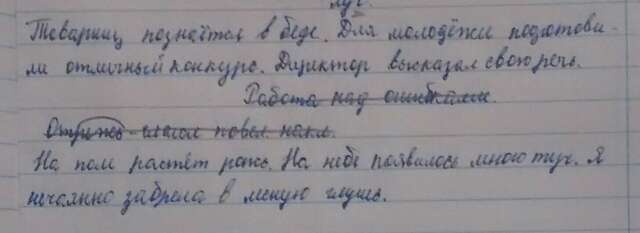 луг.
Товарищ познаётся в беде. Для молодёжи подготови-
ли отличный конкурс. Директор высказал свою речь.
Работа над ошибками.
глагол повел. накл.
На поле растёт рожь. На небе появилось много туч. Я
нечаянно забрела в